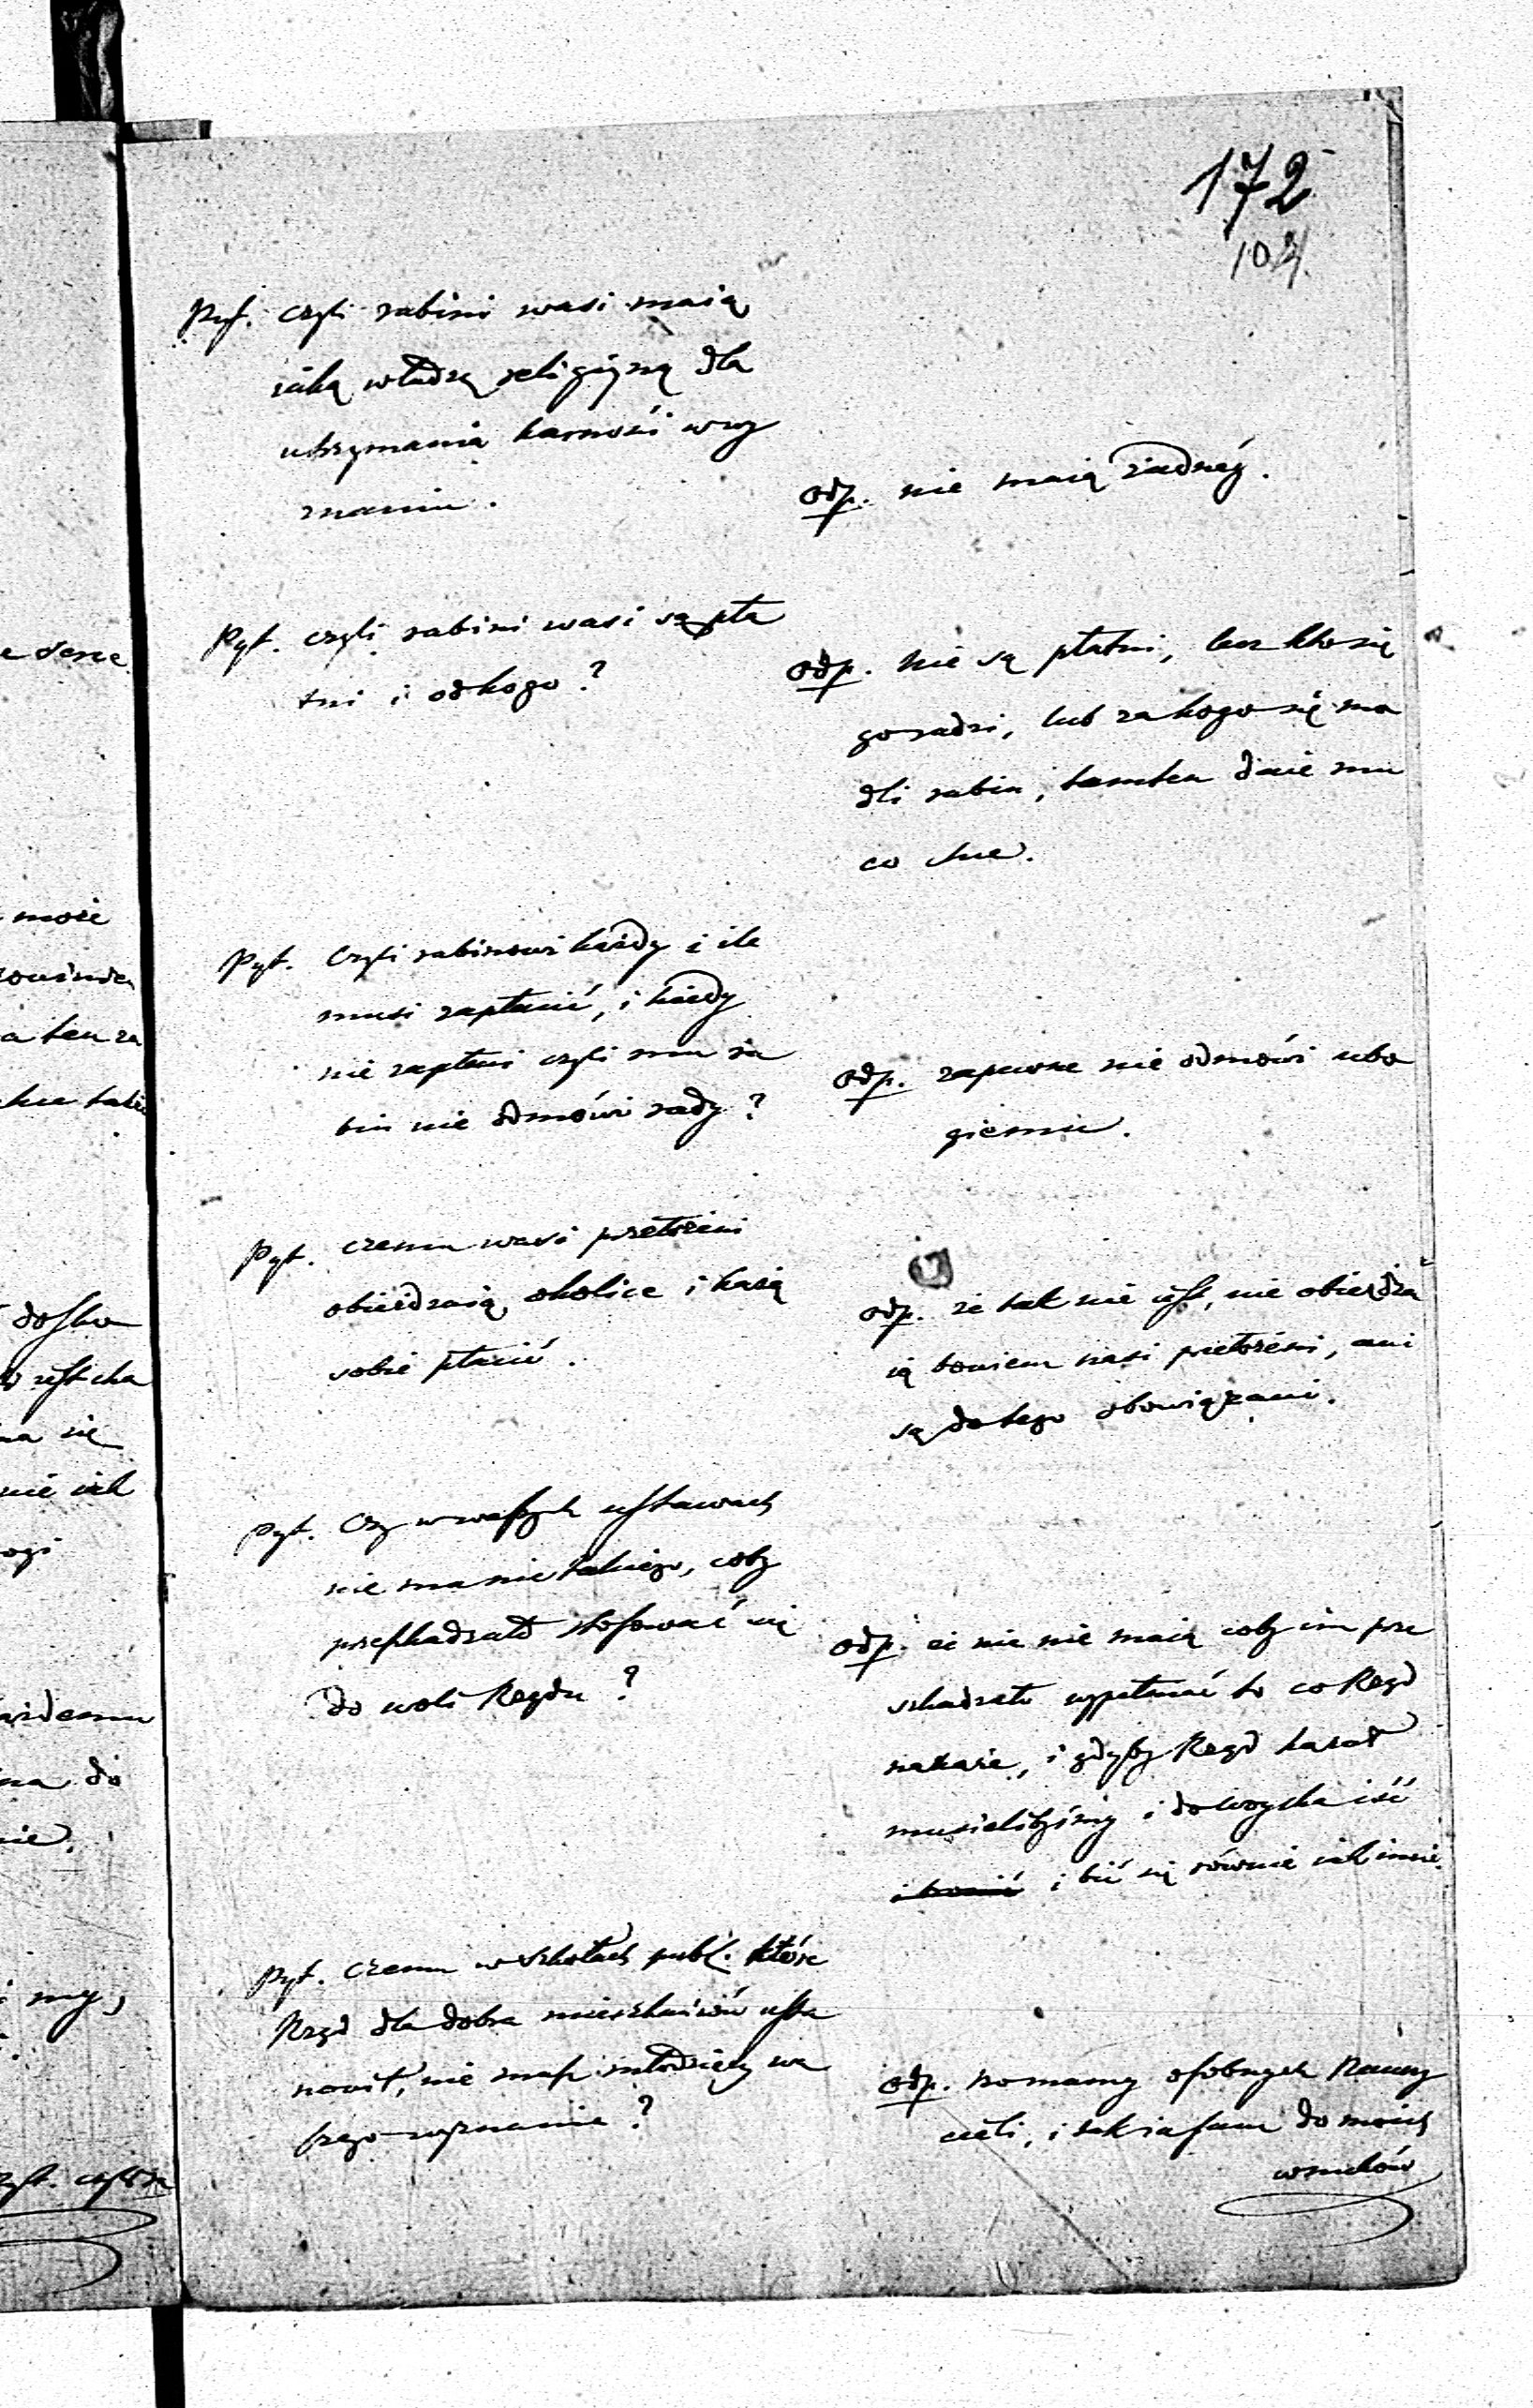 172
104.
Pyt. czyli rabini wasi maią
iaką władzę religijną dla
utrzymania karności wwy
znaniu.
odp. nie maią żadnéy.
Pyt. czyli rabini wasi są pła
tni i odkogo?
odp. nie są płatni, lecz kto się
go radzi, lub za kogo się mo
dli rabin, tamten daie mu
co chce.
Pyt. Czyli rabinowi każdy i ile
musi zapłacić, i kiedy
nie zapłaci czyli mu ra
bin nie odmówi rady?
odp. zapewne nie odmówi ubo
giemu.
Pyt. czemu wasi przełożeni
obieżdzaią okolice i każą
sobie płacić.
odp. że tak nie iest, nie obieżdża
ią bowiem nasi przełożeni, ani
są do tego obowiązani.
Pyt. Czy w waszych ustawach
nie ma nic takiego, coby
przeszkadzało stosować się
do woli Rządu?
odp. ci nic nie maią coby im prze
szkadzało wypełniać to co Rząd
nakaże, i gdyby Rząd kazał
musielibyśmy i do woyska iść
i bić się równie iak inni.
Pyt. czemu w szkołach publ. które
Rząd dla dobra mieszkańców usta
nowił, nie masz młodzieży wa
szego wyznania?
odp. bo mamy osobnych Nauczy
cieli, i tak ia sam do moich
wnuków